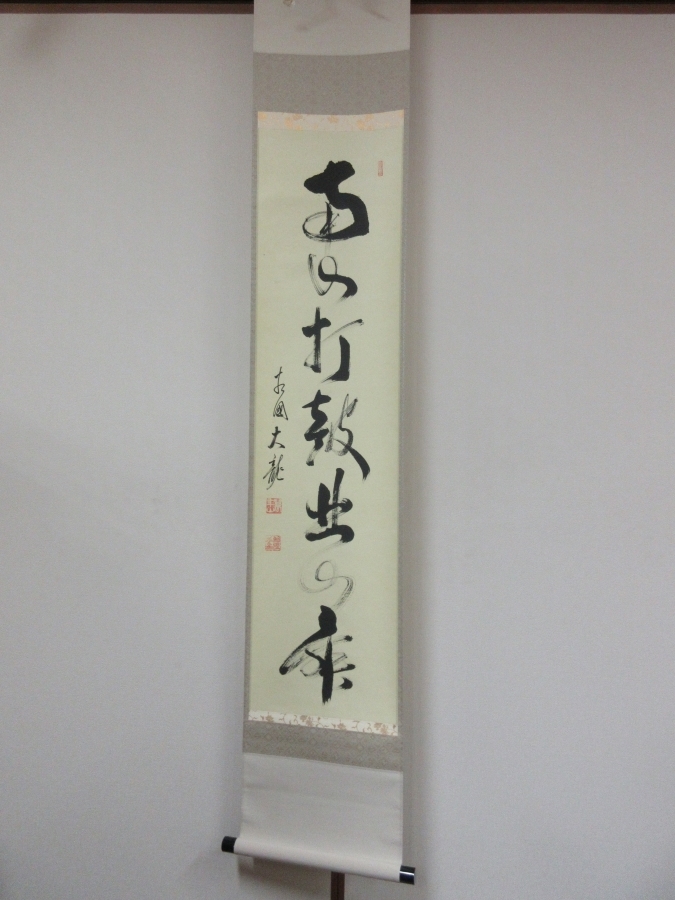 南山打鼓北山舞
相國大龍